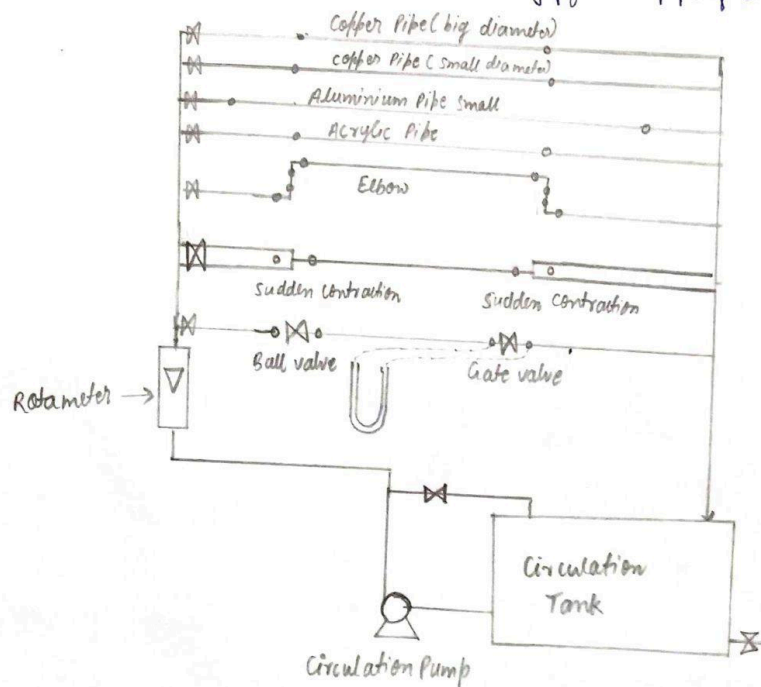 Copper Pipe (big diameter)
copper Pipe (small diameter)
Aluminium Pipe Small
Acrylic Pipe
Elbow
Sudden contraction
Sudden contraction
Ball valve
Gate valve
Rotameter
Circulation
Tank
Circulation Pump